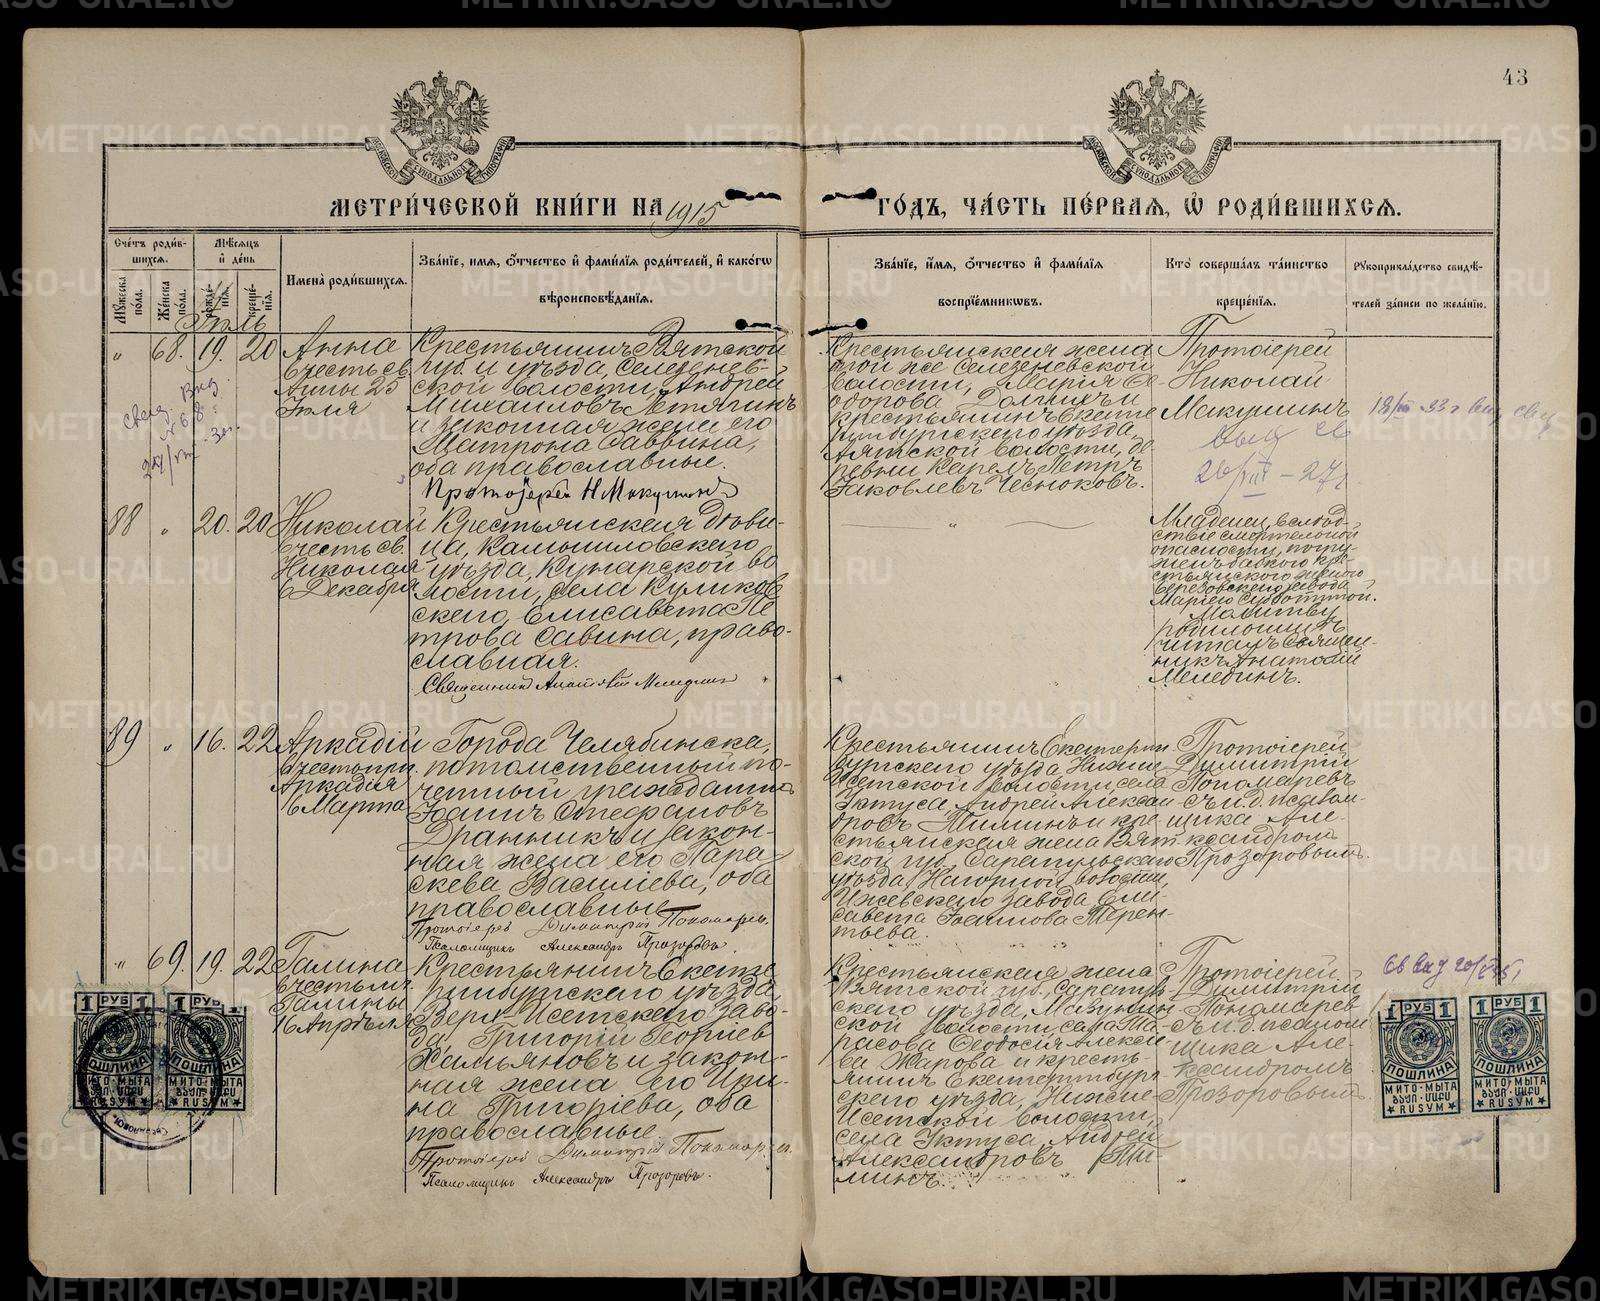 43
МЕТРИ́ЧЕСКОЙ КНИ́ГИ НА 1915
ГО́ДЪ, ЧА́СТЬ ПЕ́РВАЯ, Ѡ҆ РОДИ́ВШИХСЯ.
Сче́тъ роди́в-
шихся.
Мꙋ́жеска по́ла.
Же́нска по́ла.
Мѣ́сяцъ и҆ де́нь
рожде́нїя.
креще́нїя.
Имена̀ роди́вшихся.
Зва́нїе, имя, ѻ҆́тчество и҆ фами́лїя роди́телей, и҆ како́гѡ
вѣроисповѣ́данїя.
Зва́нїе, и҆́мя, ѻ҆́тчество и҆ фами́лїя
воспрїе́мниковъ.
Кто̀ соверша́лъ та́инство
креще́нїя.
Рꙋкоприкла́дство свидѣ́-
телей за́писи по жела́нїю.
Іюль
" 68. 19. 20
Анна
въ честь св.
Анны 25
Іюля
Крестьянинъ Вятской
губ. и уѣзда, Селезенев-
ской волости, Андрей
Михаиловъ Летягинъ
и законная жена его
Матрона Саввина,
оба православные.
Протоіерей Н Макушинъ
Крестьянская жена
той же Селезеневской
волости, Марія Ѳе-
одорова Долгихъ и
крестьянинъ Екате
ринбургскаго уѣзда,
Аятской волости, де-
ревни Корелъ Петръ
Іаковлевъ Чесноковъ.
Протоіерей
Николай
Макушинъ
выд св
26/VIII – 27г
88 " 20. 20
Николай
въ честь св.
Николая
6 Декабря
Крестьянская дѣви-
ца, Камышловскаго
уѣзда, Кунарской во
лости, села Куликов
скаго, Елисавета Пе
трова Савина, право-
славная.
Священникъ Анатолій Мелединъ
Младенец, вслѣд-
ствіе смертельной
опасности, погру-
женъ бабкою кре-
стьянскою женою
Березовскаго завода
Маріею Субботиной.
Молитву
родильницѣ
читалъ Священ-
никъ Анатолій
Меледин.
89 " 16. 22
Аркадій
въ честь прп.
Аркадія
6 Марта
Города Челябинска,
потомственный по-
четный гражданинъ
Іоаннъ Стефановъ
Дранникъ и закон-
ная жена его Пара
скева Василіева, оба
православные
Протоіерей Димитрій Пономаревъ.
Псаломщикъ Александръ Прозоровъ.
Крестьянинъ Екатерин
бургскаго уѣзда Нижне
Исетской волости, села
Уктуса, Андрей Алексан
дровъ Тиминъ и кре
стьянская жена Вят
ской губ. Сарапульскаго
уѣзда, Нагорной волости,
Ижевскаго завода Ели
савета Іоаннова Терен
тьева.
Протоіерей
Димитрій
Пономаревъ
съ и. д. псалом-
щика Але-
ксандромъ
Прозоровымъ.
" 69. 19. 22
Галина
въ честь мч.
Галины
16 Апрѣля
Крестьянинъ Екате
ринбургскаго уѣзда
Верх-Исетскаго заво
да, Григорій Георгіев
Хамьяновъ и закон-
ная жена его Ири-
на Григоріева, оба
православные
Протоіерей Димитрій Пономаревъ.
Псаломщикъ Александръ Прозоровъ.
Крестьянская жена
Вятской губ., Сарапуль
скаго уѣзда, Мазунин
ской волости, села Та-
расова Ѳеодосія Алексе
ева Жарова и кресть-
янинъ Екатеринбург
скаго уѣзда, Нижне-
Исетской волости,
села Уктуса, Андрей
Александровъ Ти-
минъ.
Протоіерей
Димитрій
Пономарев
съ и. д. псалом
щика Але-
ксандромъ
Прозоровымъ.
1 РУБ 1
ПОШЛИНА
МИТО · МЫТА
RUSYM
1 РУБ 1
ПОШЛИНА
МИТО · МЫТА
RUSYM
1 РУБ 1
ПОШЛИНА
МИТО · МЫТА
RUSYM
1 РУБ 1
ПОШЛИНА
МИТО · МЫТА
RUSYM
METRIKI.GASO-URAL.RU